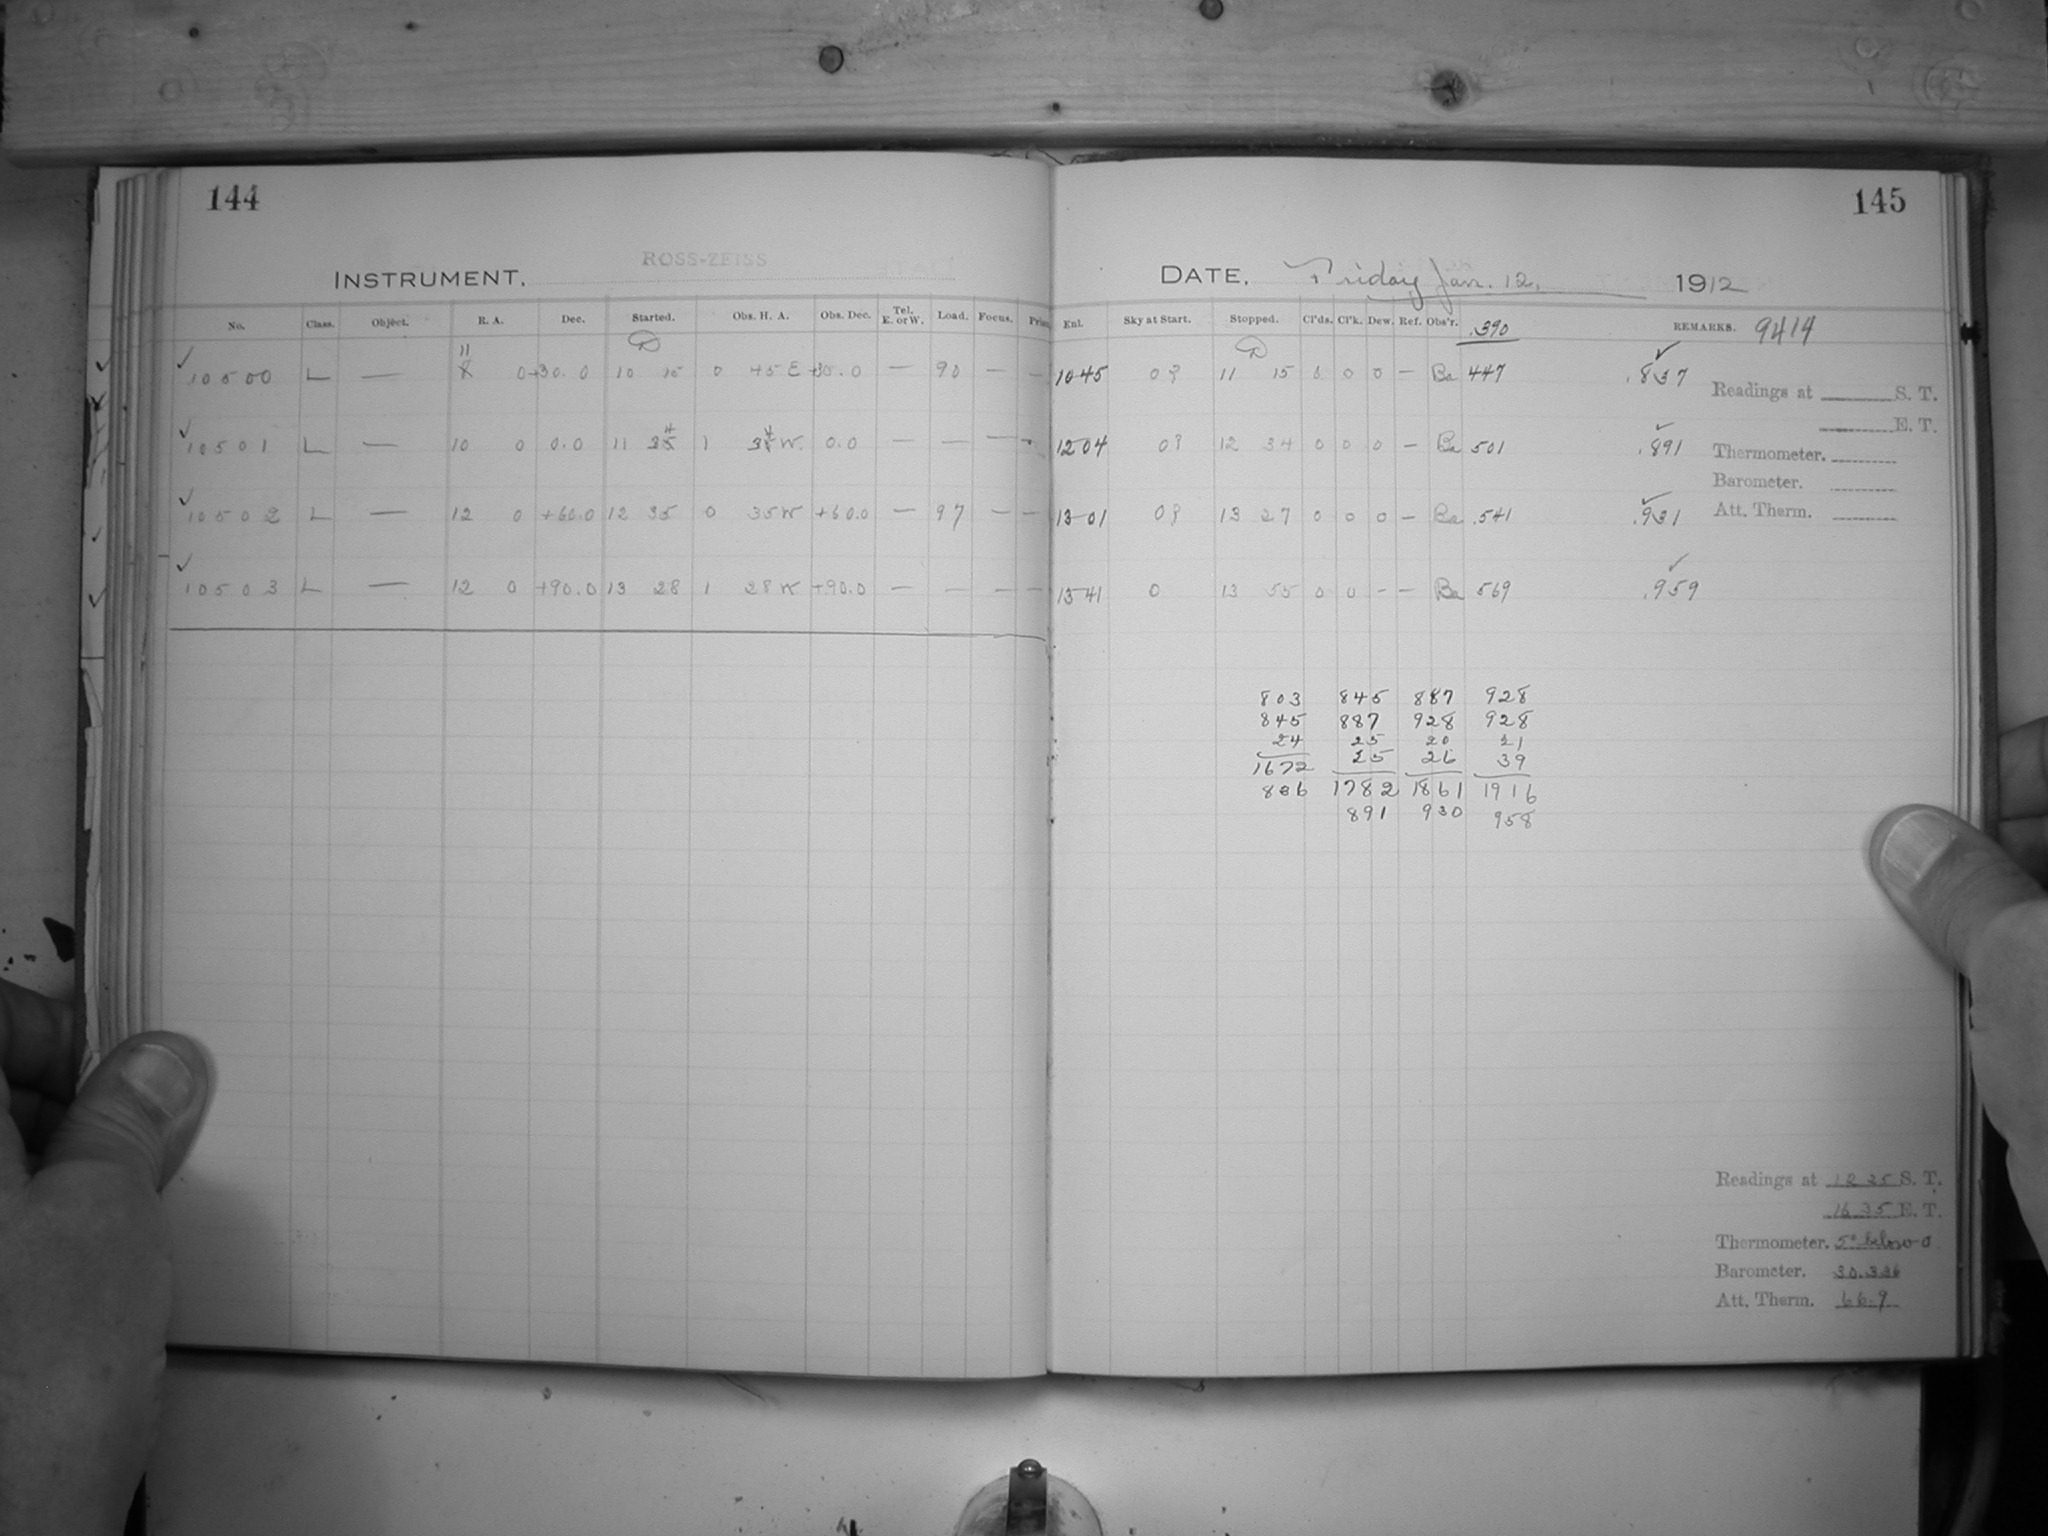 144
INSTRUMENT. ROSS-ZEISS
No. Class. Object. R. A. Dec. Started. Obs. H. A. Obs. Dec. Tel. E. or W. Load. Focus.
11
10500 L — 8 0 +30.0 10 15 0 45 E +30.0 — 90 — —
10501 L — 10 0 0.0 11 35 4 1 34 W. 0.0 — — — —
10502 L — 12 0 +60.0 12 35 0 35 W +60.0 — 97 — —
10503 L — 12 0 +90.0 13 28 1 28 W +90.0 — — — —
145
DATE. Friday Jan. 12, 1912
Enl. Sky at Start. Stopped. Cl'ds. Cl'k. Dew. Ref. Obs'r. .390 REMARKS. 9414
10 45 0? 11 15 0 0 0 — Ba 447 .837
12 04 0? 12 34 0 0 0 — Ba 501 .891
13 01 0? 13 27 0 0 0 — Ba .541 .931
13 41 0 13 55 0 0 - — Ba 569 .959
Readings at S. T.
E. T.
Thermometer.
Barometer.
Att. Therm.
803 845 887 928
845 887 928 928
24 25 20 21
1672 25 26 39
836 1782 1861 1916
891 930 958
Readings at 12 25 S. T.
16 35 E. T.
Thermometer. 5° below 0
Barometer. 30.336
Att. Therm. 66.9